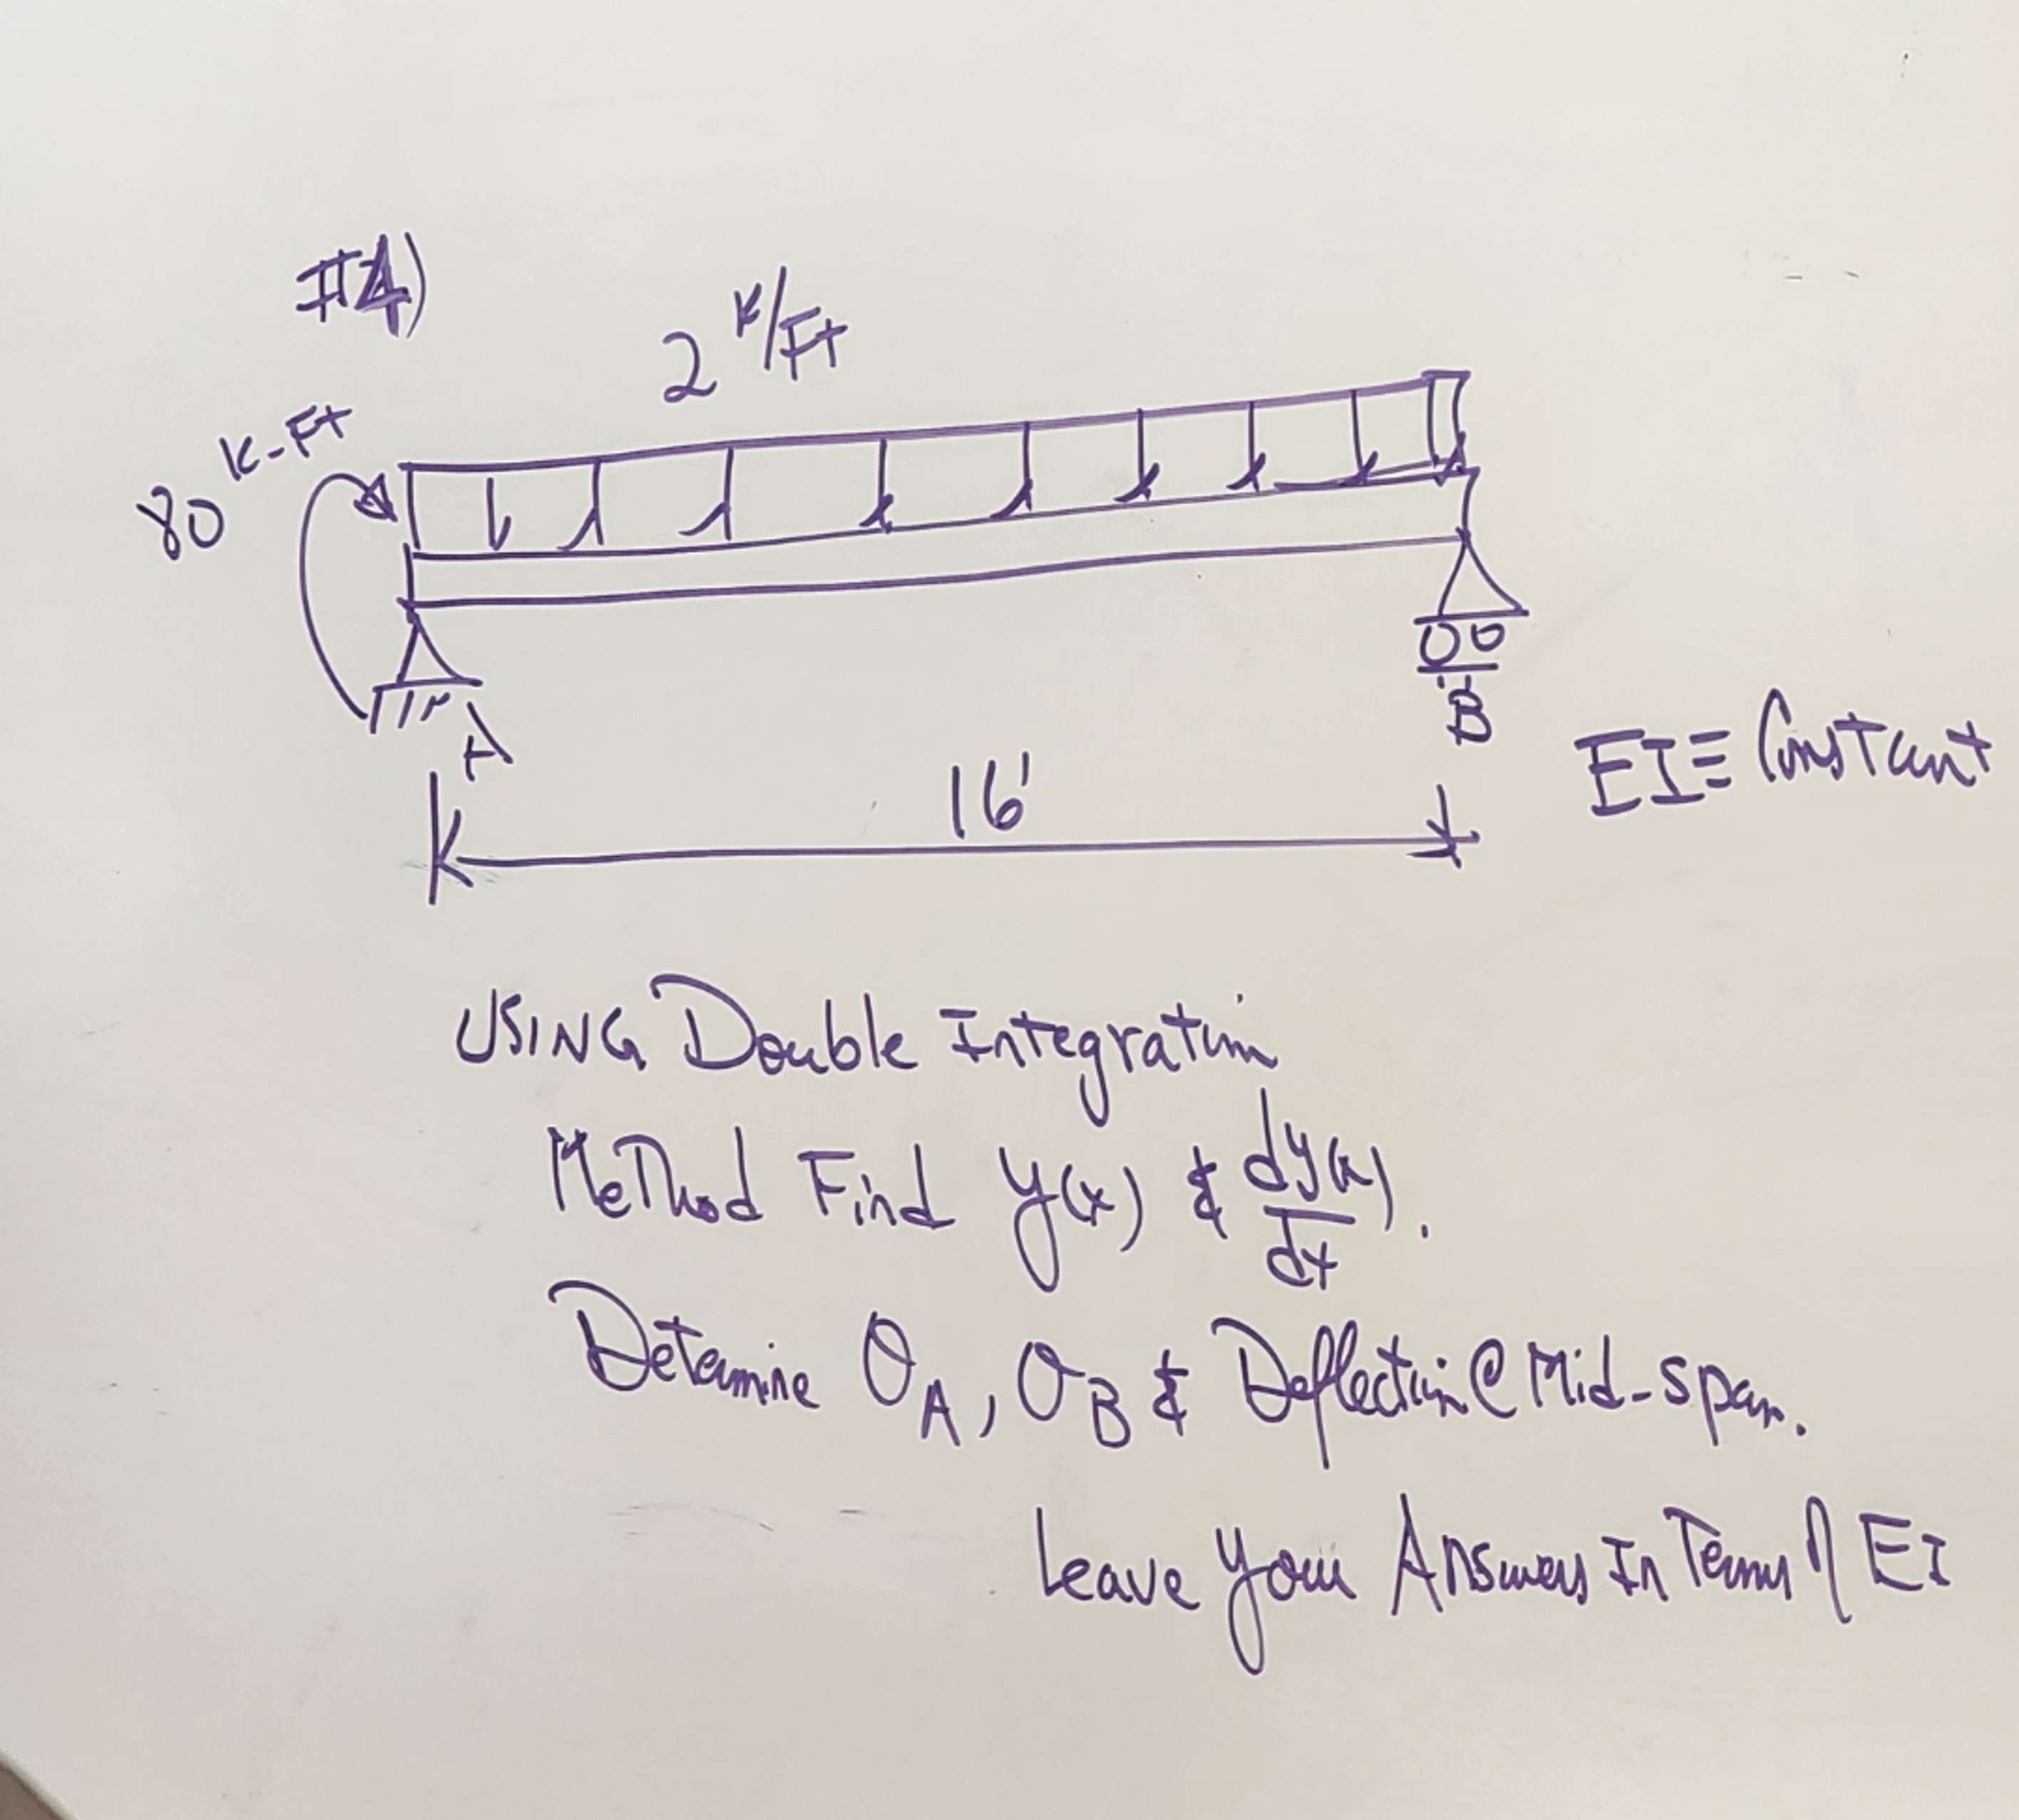 #4)
2 K/Ft
80 K-Ft
A
B
16'
EI≡ Constant
USING Double Integration
Method Find y(x) & dy(x)/dx.
Determine θA, θB & Deflection@Mid-span.
Leave your Answers In Terms of EI